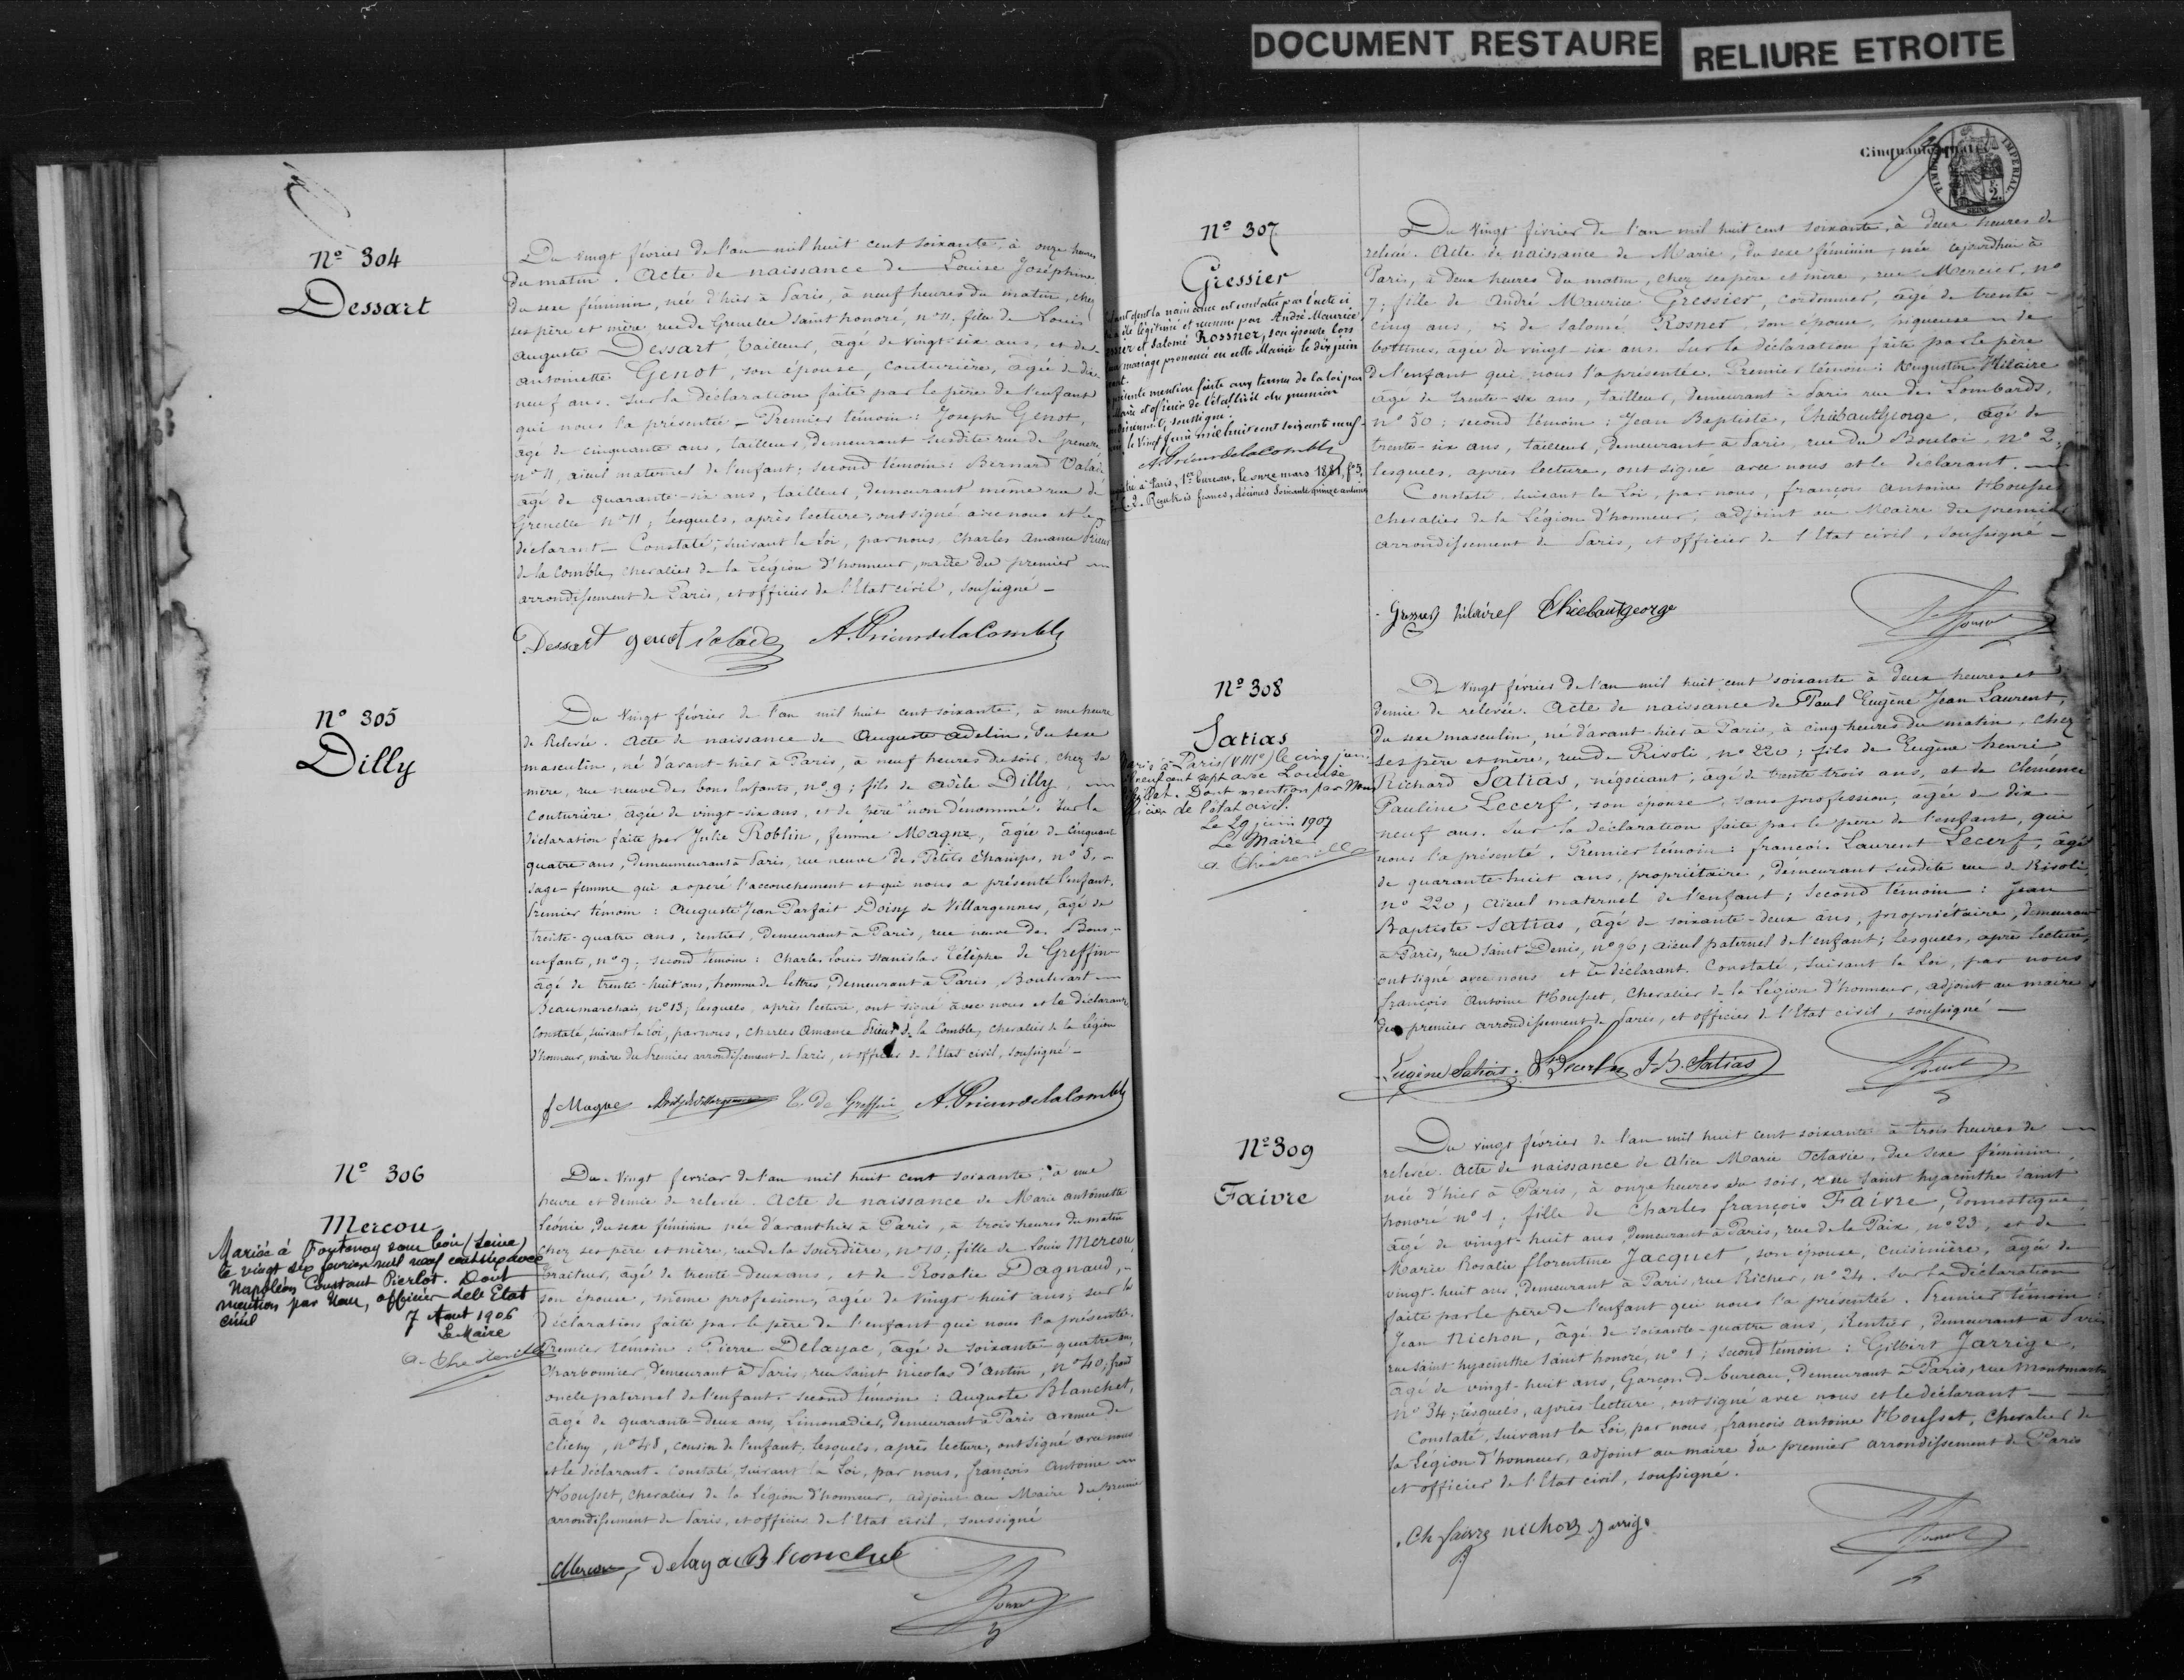 DOCUMENT RESTAURE
RELIURE ETROITE
Nº 304
Dessart
Du vingt février de l'an mil huit cent soixante, à onze heures
du matin. Acte de naissance de Louise Joséphine
du sexe féminin, née d'hier à Paris, à neuf heures du matin, chez
ses père et mère, rue de Grenelle Saint honoré, nº 11. fille de Louis
Auguste Dessart, tailleur, âgé de vingt-six ans, et de
antoinette Genot, son épouse, couturière, âgée de dix
neuf ans. Sur la déclaration faite par le père de l'enfant
qui nous l'a présentée _ Premier témoin : Joseph Genot,
âgé de cinquante ans, tailleur, demeurant susdite rue de Grenelle,
nº 11, aïeul maternel de l'enfant; second témoin : Bernard Valade
âgé de quarante-six ans, tailleur, demeurant même rue de
Grenelle nº 11; lesquels, après lecture, ont signé avec nous et le
déclarant _ Constaté, suivant la loi, par nous, Charles Amance Prieur
de la Comble, chevalier de la Légion d'honneur, maire du premier
arrondissement de Paris, et officier de l'Etat civil, soussigné _
Dessart genot Valade A. Prieur de la Comble
Nº 305
Dilly
Du vingt février de l'an mil huit cent soixante, à une heure
de Relevée. Acte de naissance de Auguste Adelin, du sexe
masculin, né d'avant-hier à Paris, à neuf heures du soir, chez sa
mère, rue neuve des bons Enfants, nº 9; fils de Adèle Dilly,
couturière, âgée de vingt-six ans, et de père non dénommé. Sur la
déclaration faite par Julie Roblin, femme Magne, âgée de cinquante
quatre ans, demeumeurant à Paris, rue neuve des Petits Champs, nº 5,
sage-femme qui a opéré l'accouchement et qui nous a présenté l'enfant.
Premier témoin : Auguste Jean Parfait Doisy de Villargennes, âgé de
trente-quatre ans, rentier, demeurant à Paris, rue neuve des Bons
enfants, nº 9; second témoin : Charles Louis Stanislas Télèphe de Greffin
âgé de trente-huit ans, homme de lettres, demeurant à Paris, Boulevart
Beaumarchais nº 13; lesquels, après lecture, ont signé avec nous et le déclarant
Constaté, suivant la loi, par nous, Charles Amance Prieur de la Comble, chevalier de la Légion
d'honneur, maire du Premier arrondissement de Paris, et officier de l'Etat civil, soussigné _
f Magne T. de Greffin A. Prieur de la Comble
Nº 306
Mercou
Mariée à Fontenay sous bois (Seine)
le vingt six fevrier mil neuf cent six avec
Napoléon Constant Pierlot. Dont
mention par Nous, officier de l'Etat
civil
7 Aout 1906
Le Maire
Du vingt fevrier de l'an mil huit cent soixante, à une
heure et demie de relevée. Acte de naissance de Marie antoinette
Léonie, du sexe féminin née d'avant-hier à Paris, à trois heures du matin
chez ses père et mère, rue de la Sourdière, nº 10; fille de Louis Mercou,
traiteur, âgé de trente-deux ans, et de Rosalie Dagnaud,
son épouse, même profession, âgée de vingt-huit ans; sur la
déclaration faite par le père de l'enfant qui nous l'a présentée.
Premier témoin : Pierre Delayac, âgé de soixante-quatre ans,
charbonnier, demeurant à Paris, rue saint nicolas d'Antin, nº 40, grand
oncle paternel de l'enfant. second témoin : Auguste Blanchet,
âgé de quarante-deux ans, Limonadier, demeurant à Paris avenue de
clichy, nº 48, cousin de l'enfant; lesquels, après lecture, ont signé avec nous
et le déclarant. Constaté, suivant la Loi, par nous, françois Antoine
Housset, chevalier de la Légion d'honneur, adjoint au Maire du premier
arrondissement de Paris, et officier de l'Etat civil, soussigné
Mercou Delayac Blanchet
Cinquante
TIMBRE IMPERIAL
SEINE
Nº 307
Gressier
dont la naissance est constatée par l'acte ci
été légitimé et reconnu par André Maurice
et Salomé Rossner, son épouse lors
mariage prononcé en cette Mairie le dix juin
présente mention faite aux termes de la loi par
Maire et officier de l'état civil du premier
arrondissement, soussigné.
le vingt juin mil huit cent soixante neuf
A. Prieur de la Comble
à Paris, 1er bureau, le onze mars 1881, fº 5,
Du Vingt février de l'an mil huit cent soixante, à deux heures de
relevée. Acte de naissance de Marie, du sexe féminin, née cejourdhui à
Paris, à deux heures du matin, chez ses père et mère, rue Mercier, nº
7; fille de André Maurice Gressier, cordonnier, âgé de trente
cinq ans, & de Salomé Rosner, son épouse, piqueuse de
bottines, âgée de vingt-six ans. Sur la déclaration faite par le père
de l'enfant qui nous l'a présentée. Premier témoin : Augustin Hilaire
âgé de trente-six ans, tailleur, demeurant à Paris rue des Lombards,
nº 50; second témoin : Jean Baptiste, Thiébautgeorge, âgé de
trente-six ans, tailleur, demeurant à Paris, rue du Bouloi, nº 2;
lesquels, après lecture, ont signé avec nous et le déclarant.
Constaté suivant la Loi, par nous, françois Antoine Housset
chevalier de la Légion d'honneur, adjoint au Maire du premier
arrondissement de Paris, et officier de l'Etat civil, soussigné _
Gressier hilaire Thiebautgeorge
Nº 308
Satias
Paris (VIIIe) le cinq juin
neuf cent sept avec Louise
Dont mention par Nous
officier de l'état civil.
Le 29 juin 1907
Le Maire
Du vingt février de l'an mil huit cent soixante à deux heures et
demie de relevée. Acte de naissance de Paul Eugène Jean Laurent,
du sexe masculin, né d'avant-hier à Paris, à cinq heures du matin, chez
ses père et mère, rue de Rivoli, nº 220; fils de Eugène henri
Richard Satias, négociant, âgé de trente trois ans, et de clémence
Pauline Lecerf, son épouse, sans profession, âgée de dix
neuf ans. Sur la déclaration faite par le père de l'enfant, qui
nous l'a présenté. Premier témoin : françois Laurent Lecerf, âgé
de quarante-huit ans, propriétaire, demeurant susdite rue de Rivoli
nº 220, aïeul maternel de l'enfant; second témoin : jean
Baptiste Satias, âgé de soixante-deux ans, propriétaire, demeurant
à Paris, rue Saint Denis, nº 96; aïeul paternel de l'enfant; lesquels, après lecture,
ont signé avec nous et le déclarant. Constaté, suivant la Loi, par nous
françois Antoine Housset, chevalier de la Légion d'honneur, adjoint au maire
du premier arrondissement de Paris, et officier de l'Etat civil, soussigné _
Eugène Satias. Lecerf J. B. Satias
Nº 309
Faivre
Du vingt février de l'an mil huit cent soixante à trois heures de
relevée. Acte de naissance de Alice Marie Octavie, du sexe féminin,
née d'hier à Paris, à onze heures du soir, rue saint hyacinthe saint
honoré nº 1; fille de charles françois Faivre, domestique
âgé de vingt-huit ans, demeurant à Paris, rue de la Paix, nº 23, et de
Marie Rosalie florentine Jacquet, son épouse, cuisinière, âgée de
vingt-huit ans, demeurant à Paris, rue Richer, nº 24. sur la déclaration
faite par le père de l'enfant qui nous l'a présentée. Premier témoin :
Jean Nichon, âgé de soixante-quatre ans, Rentier, demeurant à Paris
rue saint hyacinthe saint honoré, nº 1; second témoin : Gilbert Jarrige,
âgé de vingt-huit ans, Garçon de bureau, demeurant à Paris, rue Montmartre
nº 34; lesquels, après lecture, ont signé avec nous et le déclarant _
Constaté, suivant la Loi, par nous, francois Antoine Housset, chevalier de
la Légion d'honneur, adjoint au maire du premier arrondissement de Paris
et officier de l'Etat civil, soussigné.
Ch faivre nichon Jarrige